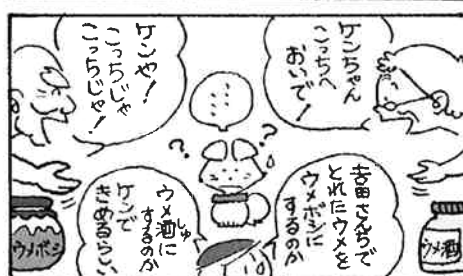 ケンちゃん
こっちへ
おいで!
ケンや!
こっちじゃ
こっちじゃ!
……
?
?
吉田さんちで
とれたウメを
ウメボシに
するのか
ウメ酒に
しゅ
するのか
ケンで
きめるらしい
ウメボシ
ウメ酒